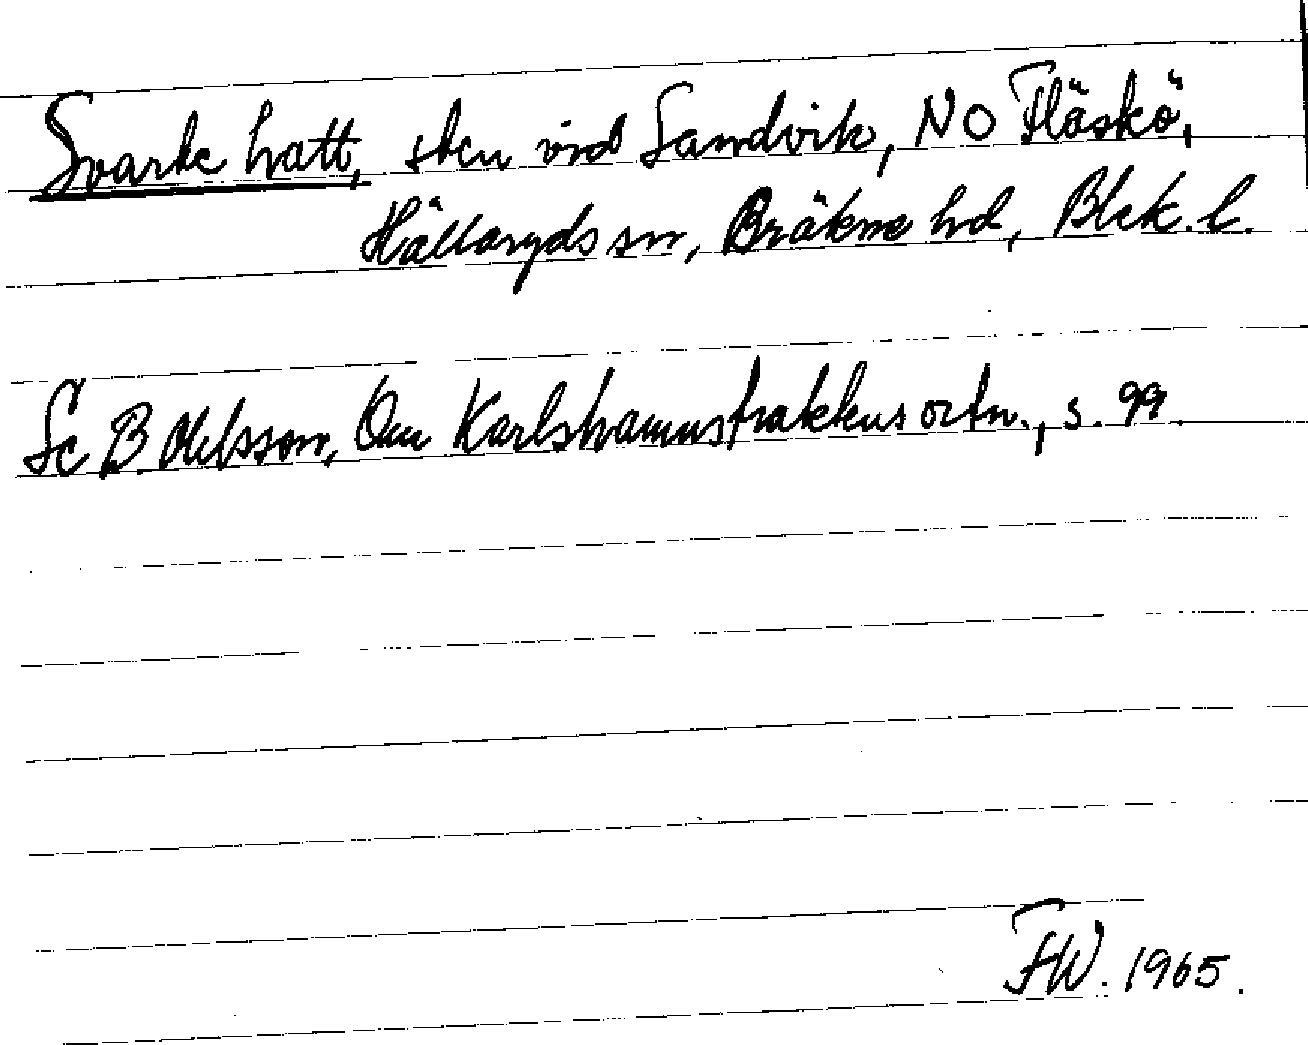 Svarte hatt, sten vid Sandvik, NO Fläskö,
Hällaryds sn, Bräkne hd, Blek. l.
Se B. Olelsson, Om Karlshamnstraktens ortn., s. 99.
FW. 1965.